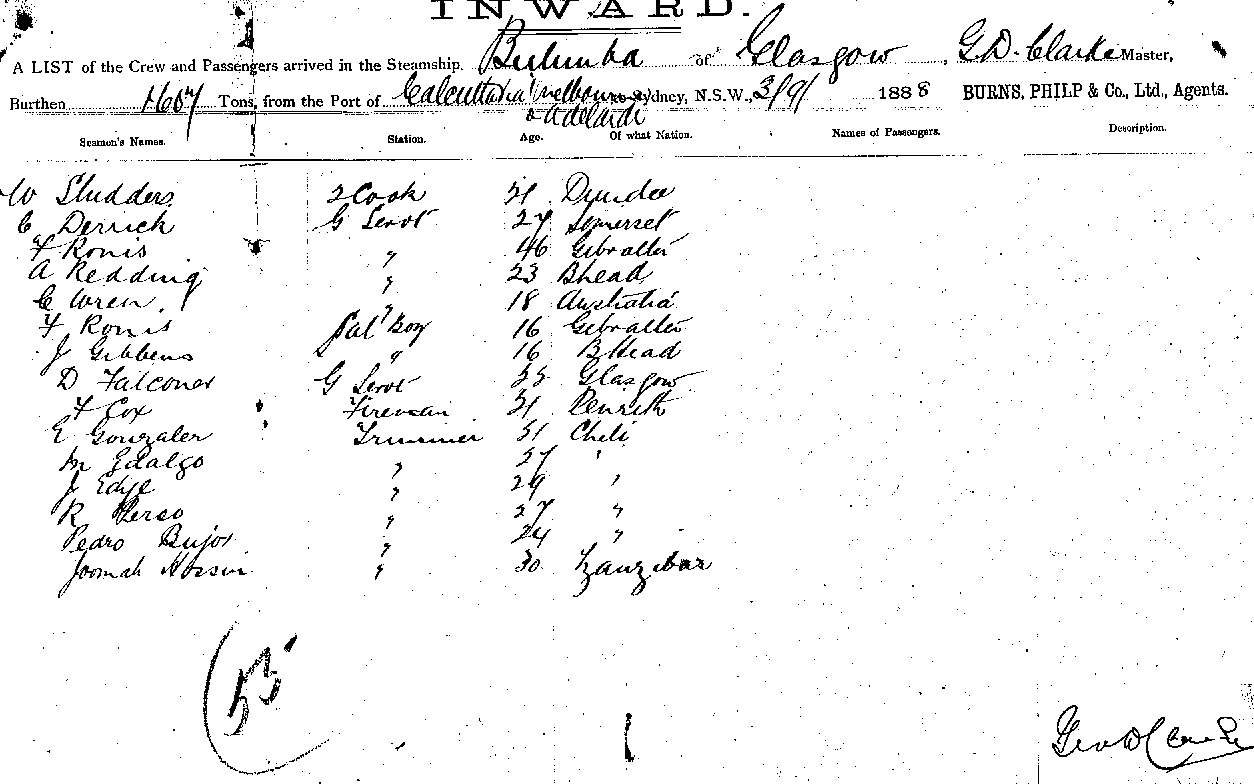 INWARD.
A LIST of the Crew and Passengers arrived in the Steamship Bulimba of Glasgow, G.D. Clarke Master,
Burthen 1607 Tons, from the Port of Calcutta via Melbourne Sydney, N.S.W., 3/9/ 1888 BURNS, PHILP & Co., Ltd., Agents.
& Adelaide
Seamen's Names. Station. Age. Of what Nation. Names of Passengers. Description.
W Sludders 2 Cook Dundee
C Derrick G Servt 27 Somerset
F Ronis " 46 Gibralter
A Redding " 23 Bhead
C Wren " 18 Australia
F Ronis Sal Boy 16 Gibralter
J Gibbens " 16 BHead
D Falconer G Servt Glasgow
F Cox Fireman Penrith
E Gonzaler Trimmer Chili
M Edalgo " 27 "
J Edye " 29 "
R Perso " 27 "
Pedro Bujor " 24 "
Joomah Hossin " 30 Zanzibar
53
Geo D Clarke